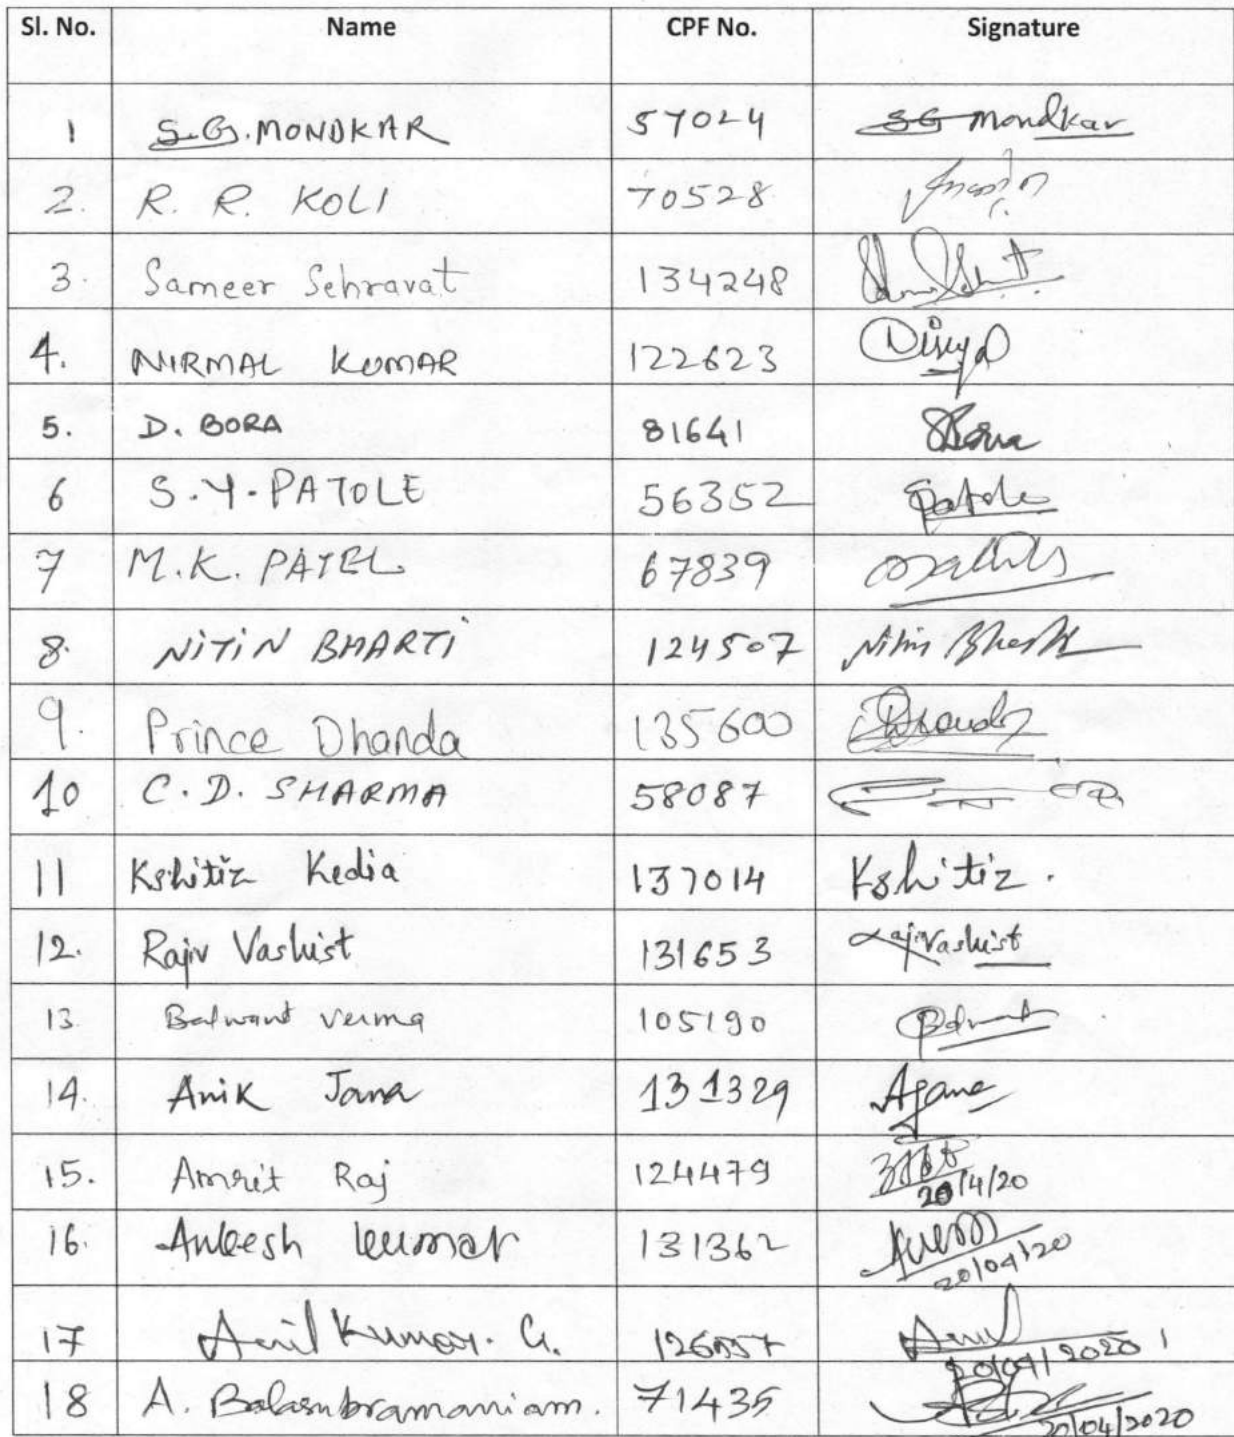 Sl. No. Name CPF No. Signature
1 S.G. MONDKAR 57024 SG Mondkar
2. R. R. KOLI 70528
3. Sameer Sehravat 134248
4. NIRMAL KUMAR 122623
5. D. BORA 81641 Bora
6 S.Y. PATOLE 56352 Patole
7 M.K. PATEL 67839
8. NITIN BHARTI 124507 Nitin Bharti
9. Prince Dhanda 135600 Dhanda
10 C.D. SHARMA 58087
11 Kshitiz Kedia 137014 Kshitiz.
12. Rajiv Vashist 131653 Rajiv Vashist
13 Balwant Verma 105190
14. Anik Jana 131329 AJana
15. Amrit Raj 124479
20/4/20
16. Ankesh kumar 131362
20/04/20
17 Anil Kumar. G. Anil
20/04/2020
18 A. Balasubramaniam. 71435
20/04/2020